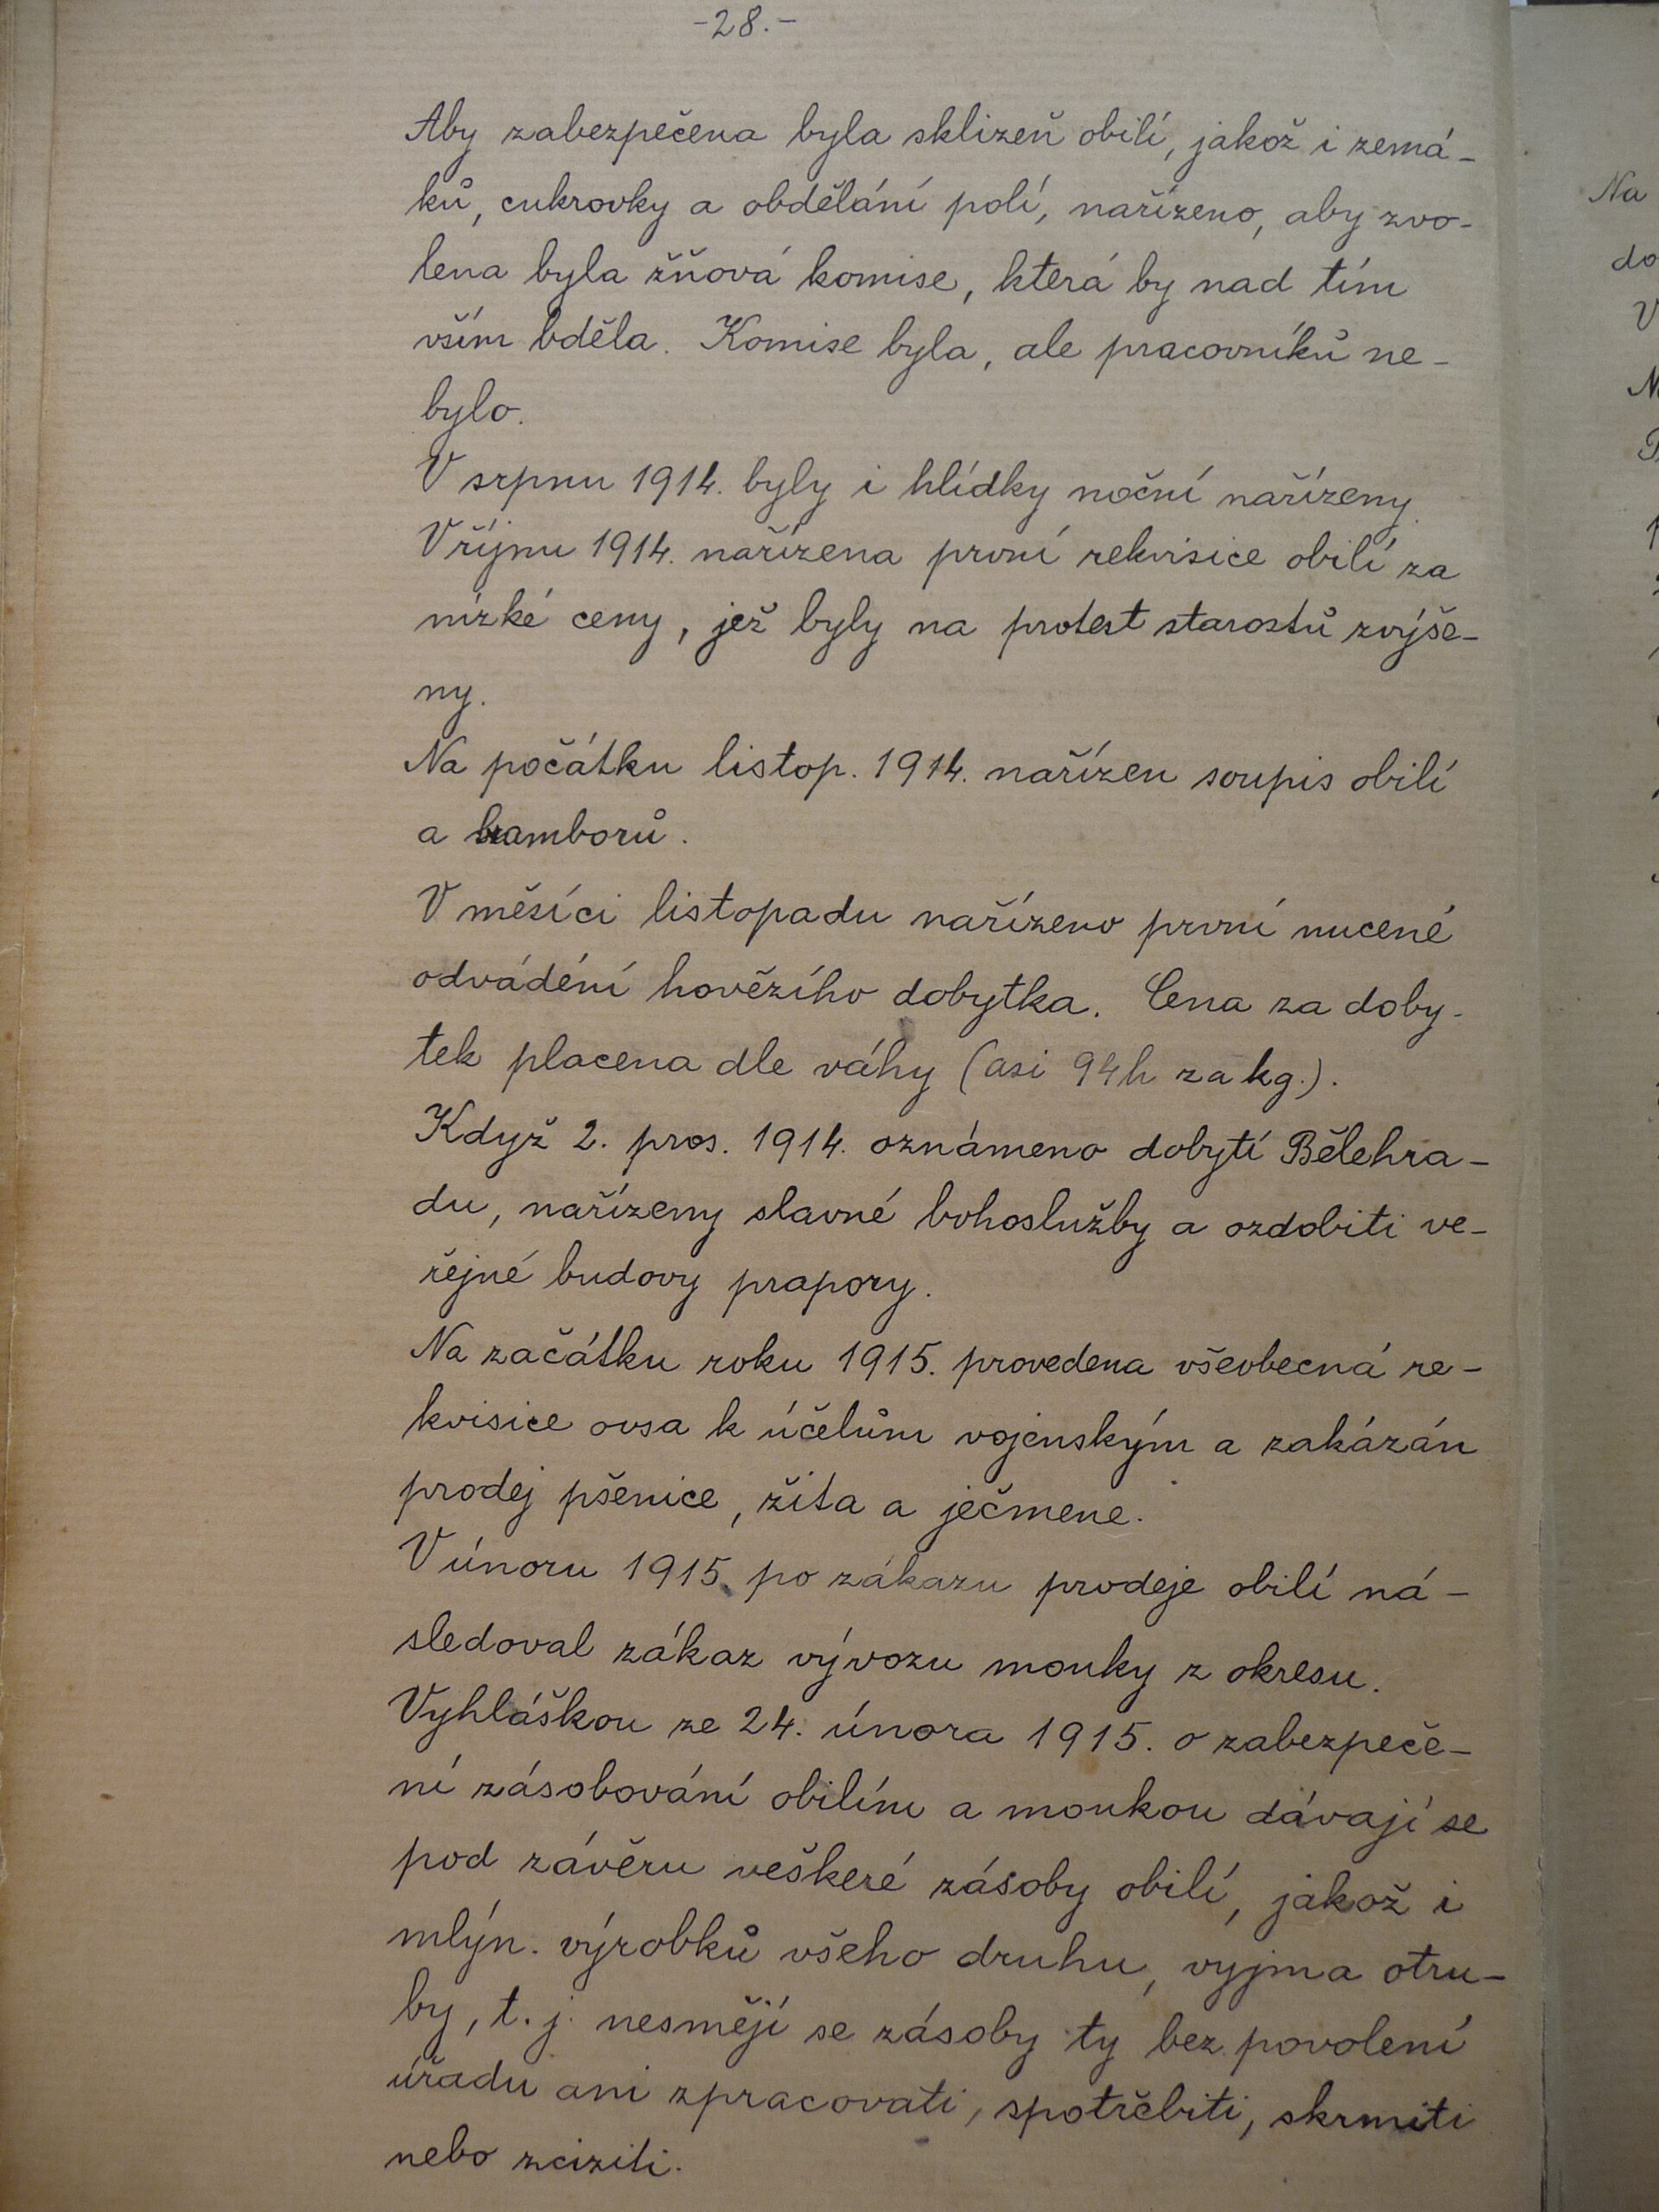 -28.-
Aby zabezpečena byla sklizeň obilí, jakož i zemá-
ků, cukrovky a obdělání polí, nařízeno, aby zvo-
lena byla žňová komise, která by nad tím
vším bděla. Komise byla, ale pracovníků ne-
bylo.
V srpnu 1914. byly i hlídky noční nařízeny.
V říjnu 1914. nařízena první rekvisice obilí za
nízké ceny, jež byly na protest starostů zvýše-
ny.
Na počátku listop. 1914. nařízen soupis obilí
a bramborů.
V měsíci listopadu nařízeno první nucené
odvádění hovězího dobytka. Cena za doby-
tek placena dle váhy (asi 94h za kg.).
Když 2. pros. 1914. oznámeno dobytí Bělehra-
du, nařízeny slavné bohoslužby a ozdobiti ve-
řejné budovy prapory.
Na začátku roku 1915. provedena všeobecná re-
kvisice ovsa k účelům vojenským a zakázán
prodej pšenice, žita a ječmene.
V únoru 1915. po zákazu prodeje obilí ná-
sledoval zákaz vývozu mouky z okresu.
Vyhláškou ze 24. února 1915. o zabezpeče-
ní zásobování obilím a moukou dávají se
pod závěru veškeré zásoby obilí, jakož i
mlýn. výrobků všeho druhu, vyjma otru-
by, t. j. nesmějí se zásoby ty bez povolení
úřadu ani zpracovati, spotřebiti, skrmiti
nebo zciziti.
Na
do